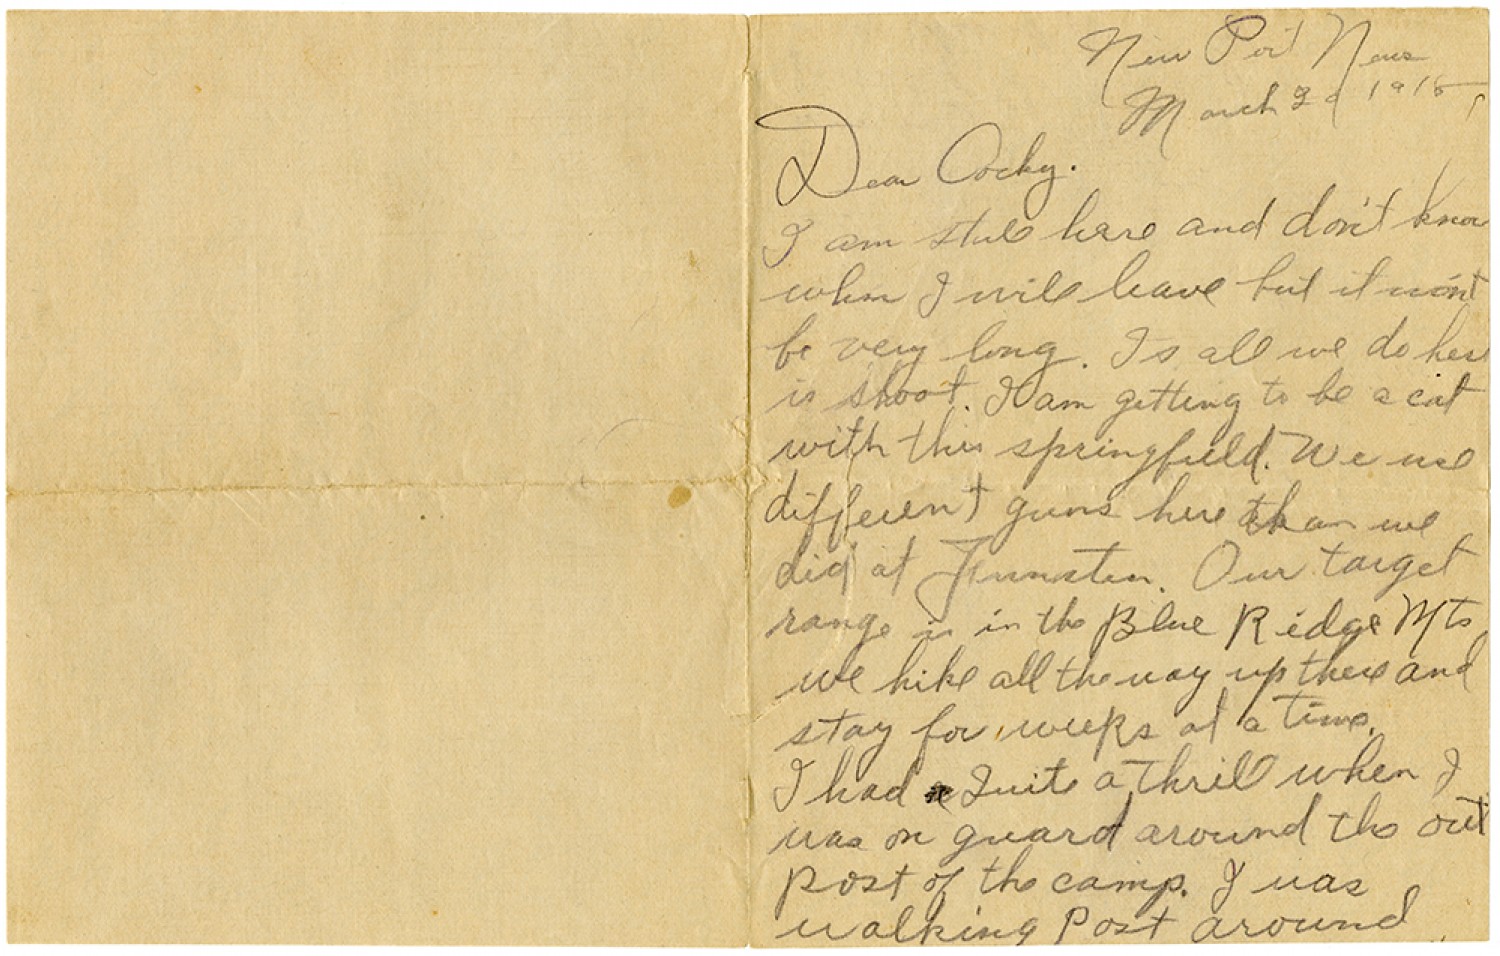 New Port News
March 1918,
Dear Cocky.
I am still here and don't know
when I will leave but it won't
be very long. Is all we do here
is shoot. I am getting to be a cat
with this springfield. We use
different guns here than we
did at . Our target
range is in the Blue Ridge Mts
we hike all the way up there and
stay for weeks at a time.
I had Quite a thrill when I
was on guard around the out
post of the camp. I was
walking Post around